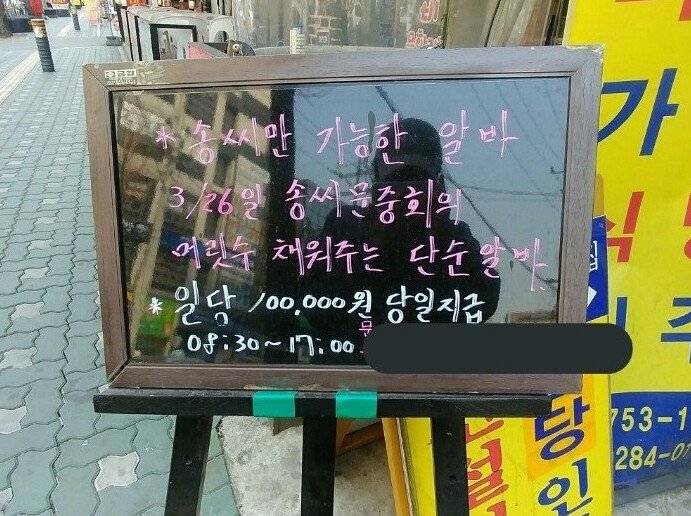 * 송씨만 가능한 알바
3/26일 송씨문중회의
머릿수 채워주는 단순알바.
* 일당 100,000원 당일지급
08:30~17:00
문
가
식
주
753-1
284-0
당
인